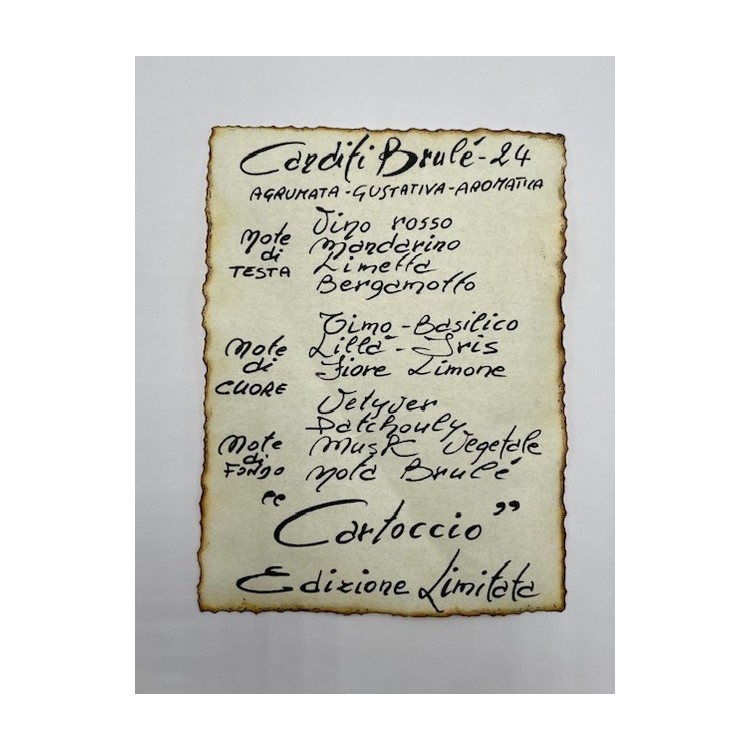 Canditi Brulé-24
AGRUMATA-GUSTATIVA-AROMATICA
Note di TESTA
Vino rosso
Mandarino
Limetta
Bergamotto
Note di CUORE
Timo-Basilico
Lillà-Iris
Fiore Limone
Note di FONDO
Vetyver
Patchouly
Musk Vegetale
Nota Brulé
"Cartoccio"
Edizione Limitata